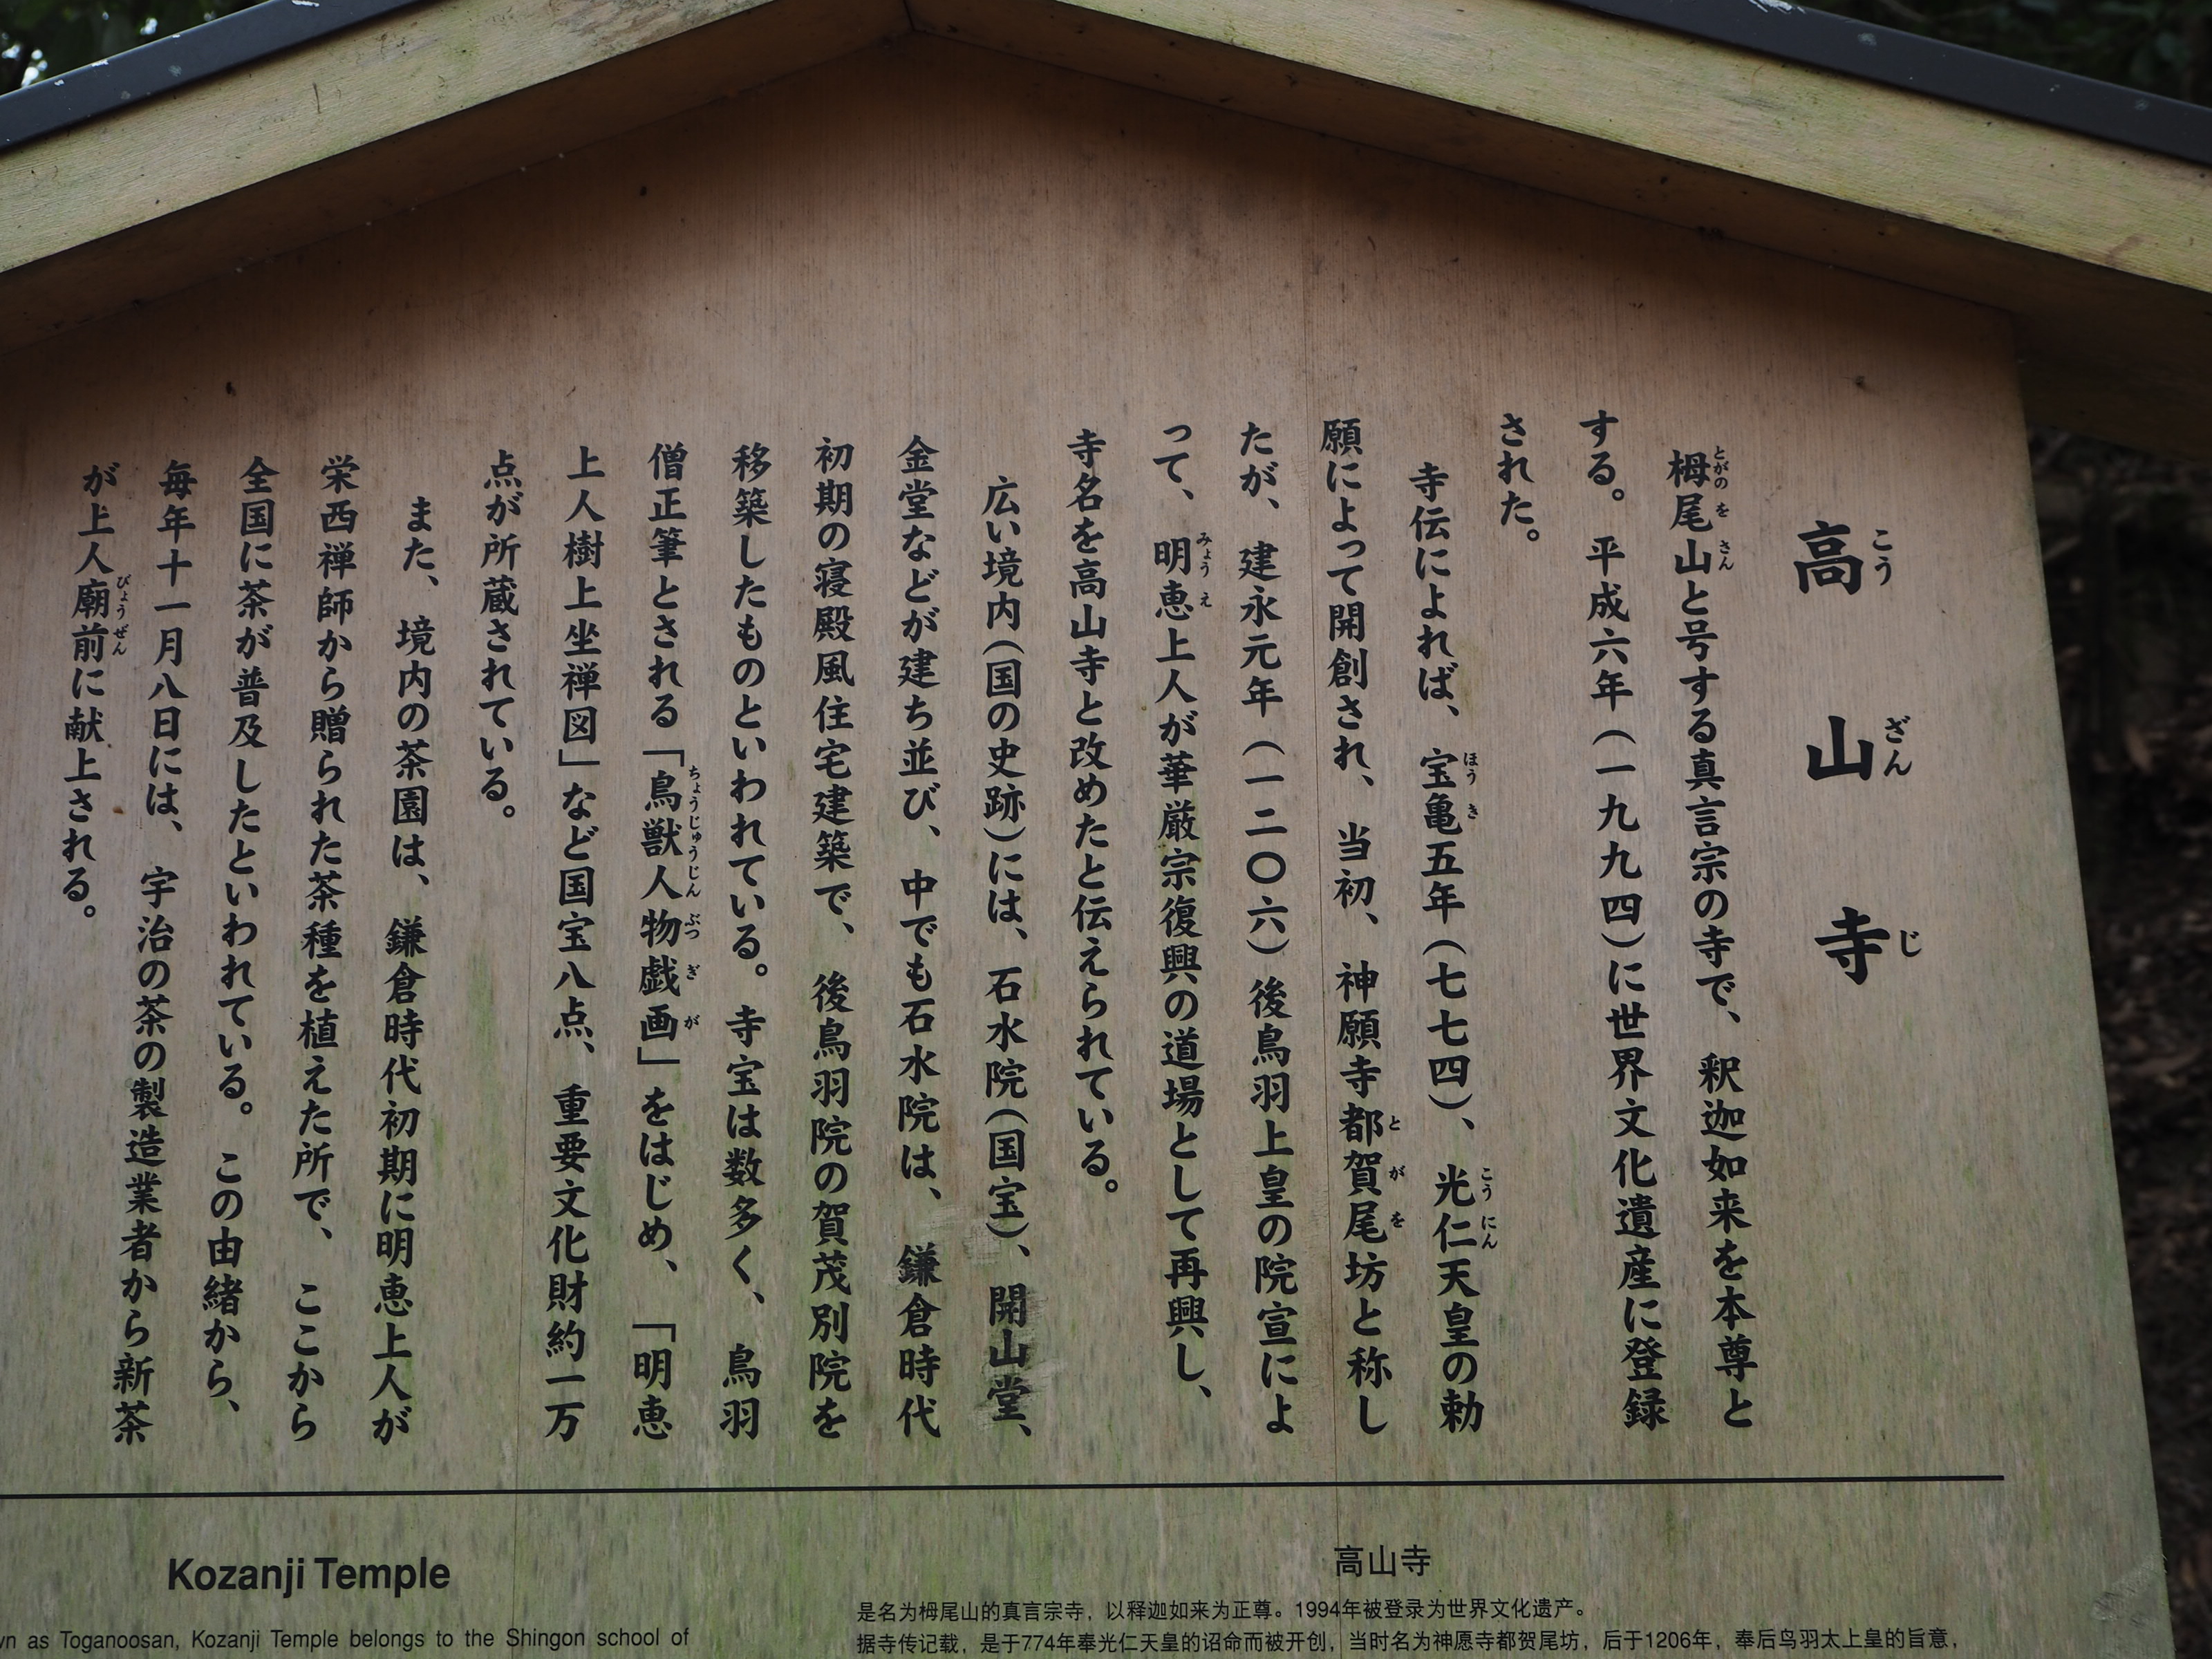 高山寺
こうざんじ
栂尾山と号する真言宗の寺で、釈迦如来を本尊と
とがのをさん
する。平成六年（一九九四）に世界文化遺産に登録
された。
寺伝によれば、宝亀五年（七七四）、光仁天皇の勅
ほうき こうにん
願によって開創され、当初、神願寺都賀尾坊と称し
とがを
たが、建永元年（一二〇六）後鳥羽上皇の院宣によ
って、明恵上人が華厳宗復興の道場として再興し、
みょうえ
寺名を高山寺と改めたと伝えられている。
広い境内（国の史跡）には、石水院（国宝）、開山堂、
金堂などが建ち並び、中でも石水院は、鎌倉時代
初期の寝殿風住宅建築で、後鳥羽院の賀茂別院を
移築したものといわれている。寺宝は数多く、鳥羽
僧正筆とされる「鳥獣人物戯画」をはじめ、「明恵
ちょうじゅうじんぶつぎが
上人樹上坐禅図」など国宝八点、重要文化財約一万
点が所蔵されている。
また、境内の茶園は、鎌倉時代初期に明恵上人が
栄西禅師から贈られた茶種を植えた所で、ここから
全国に茶が普及したといわれている。この由緒から、
毎年十一月八日には、宇治の茶の製造業者から新茶
が上人廟前に献上される。
びょうぜん
Kozanji Temple
vn as Toganoosan, Kozanji Temple belongs to the Shingon school of
高山寺
是名为栂尾山的真言宗寺，以释迦如来为正尊。1994年被登录为世界文化遗产。
据寺传记载，是于774年奉光仁天皇的诏命而被开创，当时名为神愿寺都贺尾坊，后于1206年，奉后鸟羽太上皇的旨意，